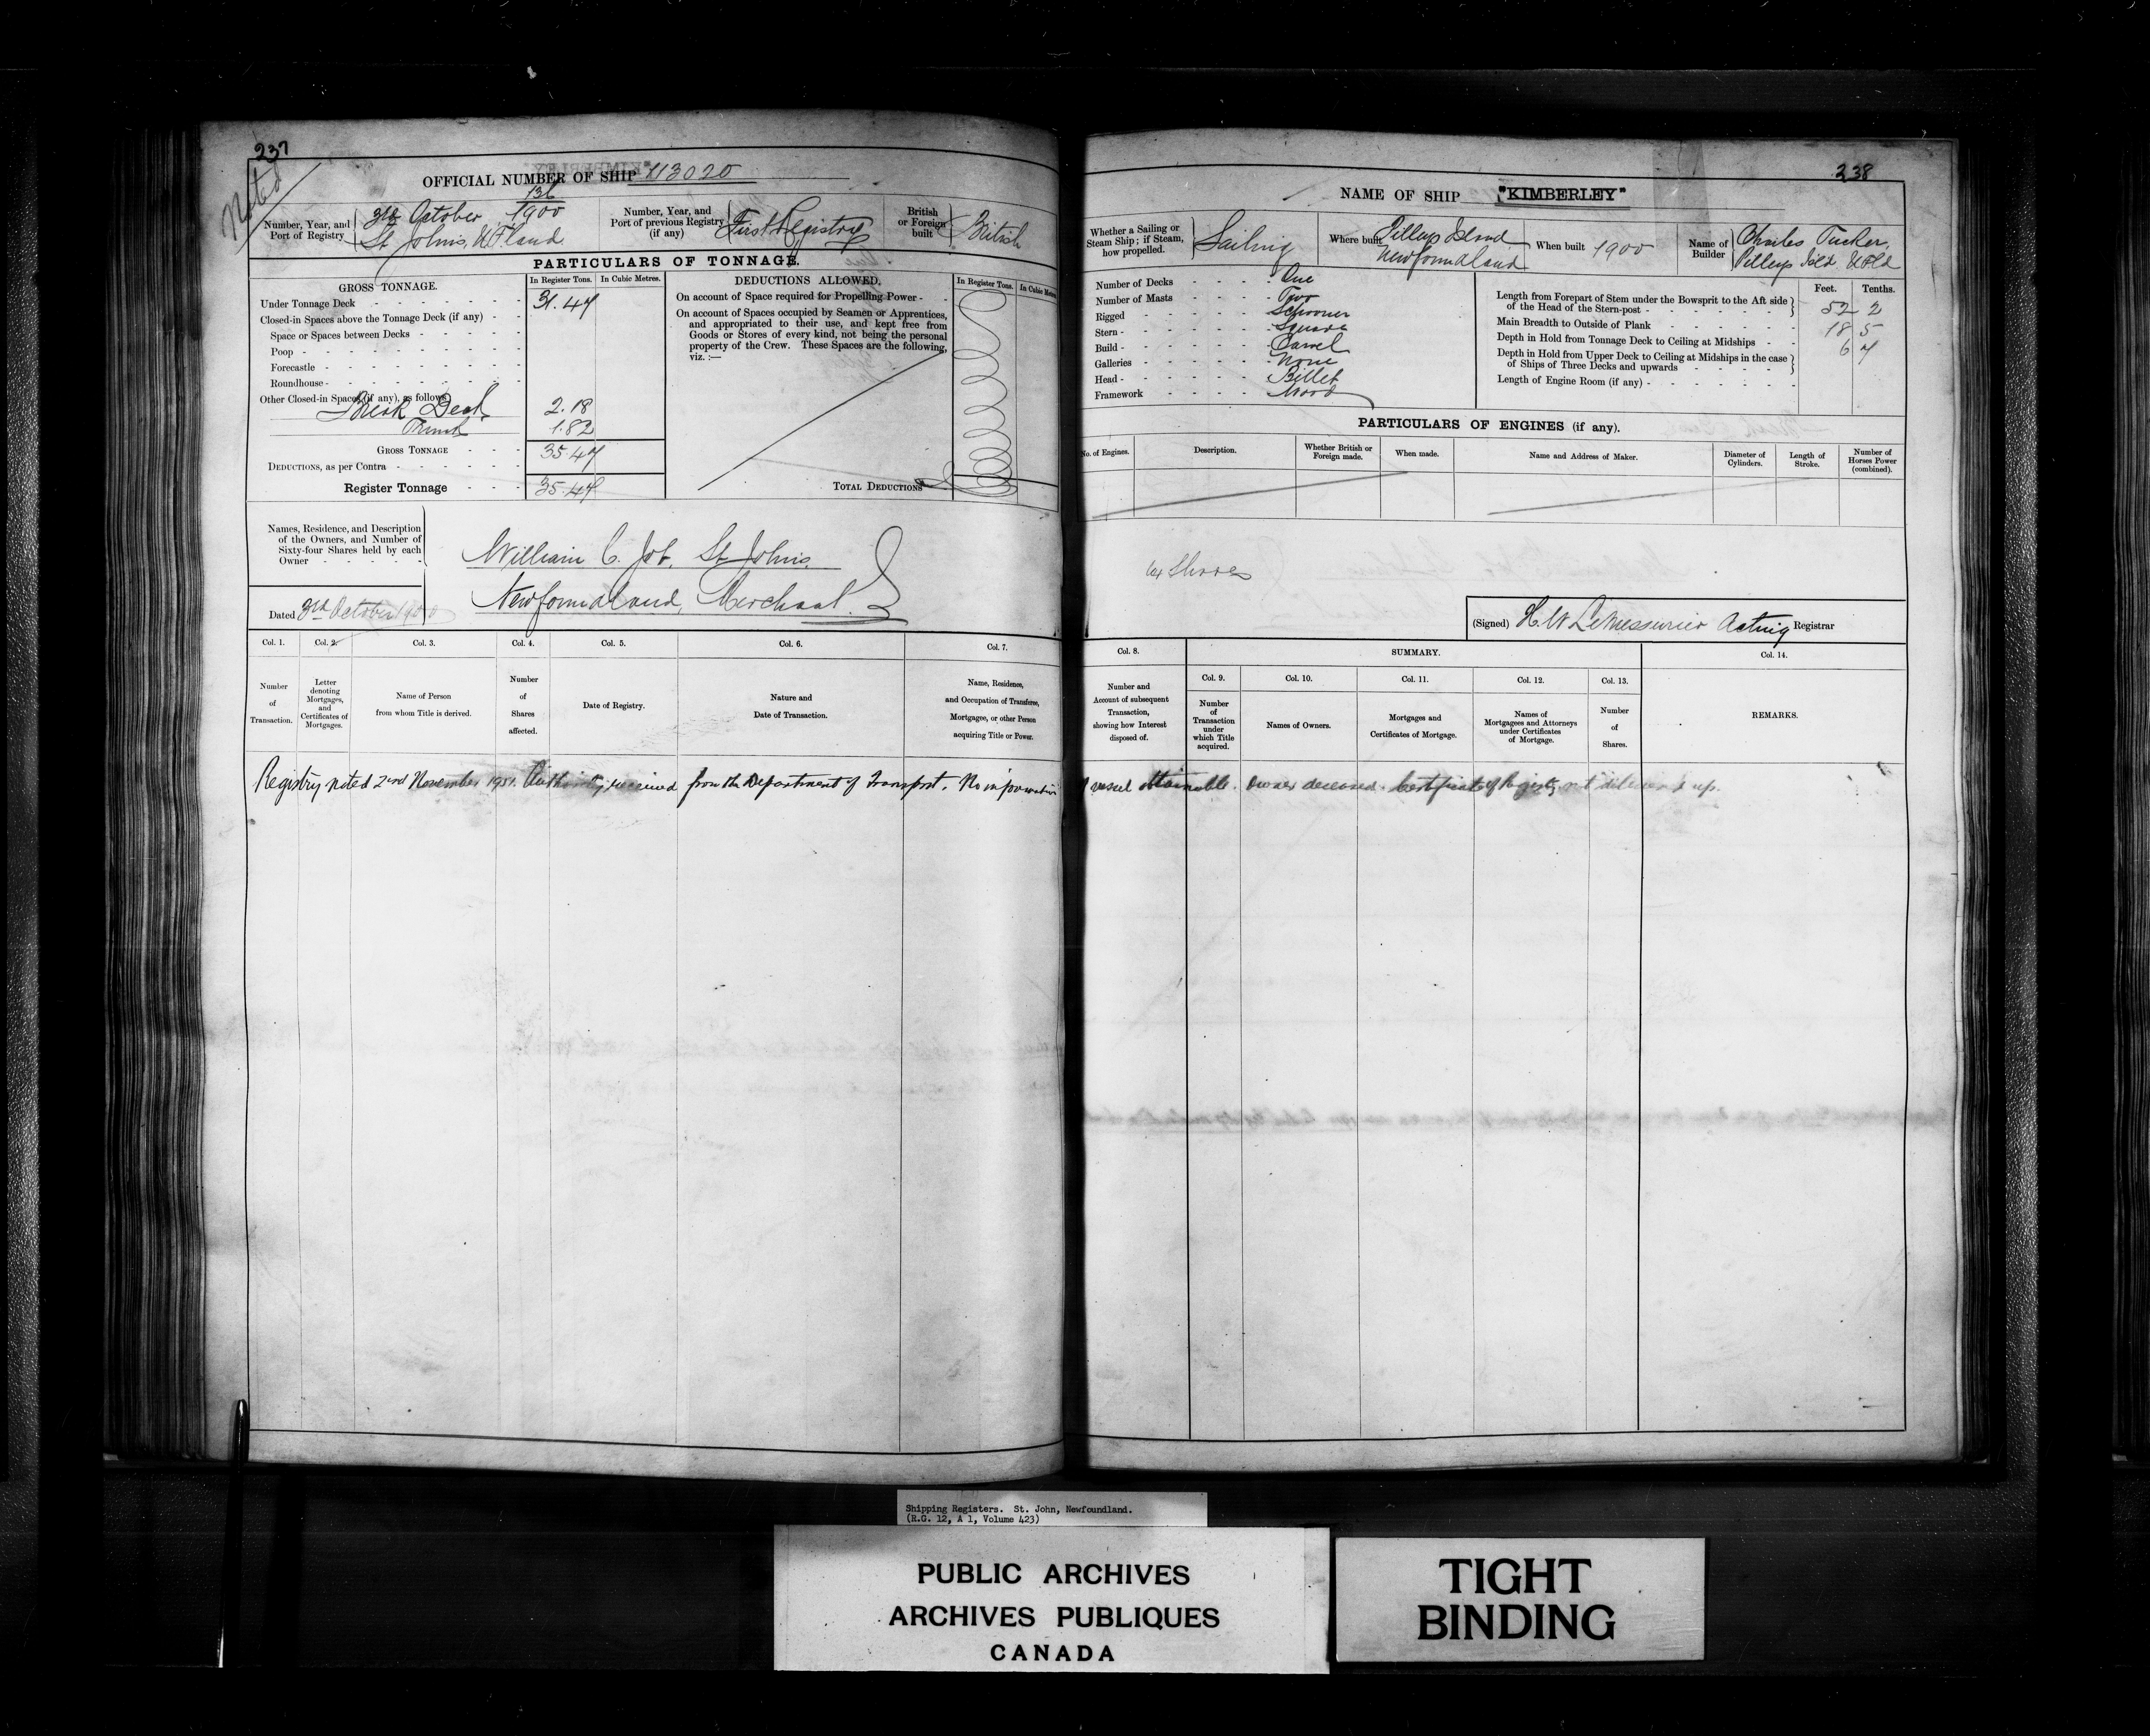 237
Noted
OFFICIAL NUMBER OF SHIP 113020
Number, Year, and Port of Registry
136
3rd October 1900
St Johns, NFland
Number, Year, and Port of previous Registry (if any)
First Registry
British or Foreign built
British
PARTICULARS OF TONNAGE.
GROSS TONNAGE.
In Register Tons.
In Cubic Metres.
Under Tonnage Deck 31.47
Closed-in Spaces above the Tonnage Deck (if any)
Space or Spaces between Decks
Poop
Forecastle
Roundhouse
Other Closed-in Spaces (if any), as follows
Break Deck 2.18
Trunk 1.82
GROSS TONNAGE 35.47
DEDUCTIONS, as per Contra
Register Tonnage 35.47
DEDUCTIONS ALLOWED.
In Register Tons.
In Cubic Metres
On account of Space required for Propelling Power
On account of Spaces occupied by Seamen or Apprentices,
and appropriated to their use, and kept free from
Goods or Stores of every kind, not being the personal
property of the Crew. These Spaces are the following,
viz. :—
TOTAL DEDUCTIONS
Names, Residence, and Description
of the Owners, and Number of
Sixty-four Shares held by each
Owner
William C. Job, St Johns,
Newfoundland, Merchant.
Dated 3rd October 1900
Col. 1.
Number of Transaction.
Col. 2.
Letter denoting Mortgages, and Certificates of Mortgages.
Col. 3.
Name of Person from whom Title is derived.
Col. 4.
Number of Shares affected.
Col. 5.
Date of Registry.
Col. 6.
Nature and Date of Transaction.
Col. 7.
Name, Residence, and Occupation of Transferee, Mortgagee, or other Person acquiring Title or Power.
238
NAME OF SHIP "KIMBERLEY"
Whether a Sailing or Steam Ship; if Steam, how propelled.
Sailing
Where built
Pilleys Island
Newfoundland
When built 1900
Name of Builder
Charles Tucker,
Pilleys Isld NFld
Number of Decks One
Number of Masts Two
Rigged Schooner
Stern Square
Build Carvel
Galleries None
Head Billet
Framework Wood
Feet. Tenths.
Length from Forepart of Stem under the Bowsprit to the Aft side
of the Head of the Stern-post 52 2
Main Breadth to Outside of Plank 18 5
Depth in Hold from Tonnage Deck to Ceiling at Midships 6 7
Depth in Hold from Upper Deck to Ceiling at Midships in the case
of Ships of Three Decks and upwards
Length of Engine Room (if any)
PARTICULARS OF ENGINES (if any).
No. of Engines.
Description.
Whether British or Foreign made.
When made.
Name and Address of Maker.
Diameter of Cylinders.
Length of Stroke.
Number of Horses Power (combined).
64 Shares
(Signed) H. W LeMessurier Acting Registrar
Col. 8.
Number and Account of subsequent Transaction, showing how Interest disposed of.
SUMMARY.
Col. 9.
Number of Transaction under which Title acquired.
Col. 10.
Names of Owners.
Col. 11.
Mortgages and Certificates of Mortgage.
Col. 12.
Names of Mortgagees and Attorneys under Certificates of Mortgage.
Col. 13.
Number of Shares.
Col. 14.
REMARKS.
Registry noted 2nd November 1951. Authority received from the Department of Transport. No information of vessel obtainable. Owner deceased. Certificate of Registry not delivered up.
Shipping Registers. St. John, Newfoundland.
(R.G. 12, A 1, Volume 423)
PUBLIC ARCHIVES
ARCHIVES PUBLIQUES
CANADA
TIGHT
BINDING